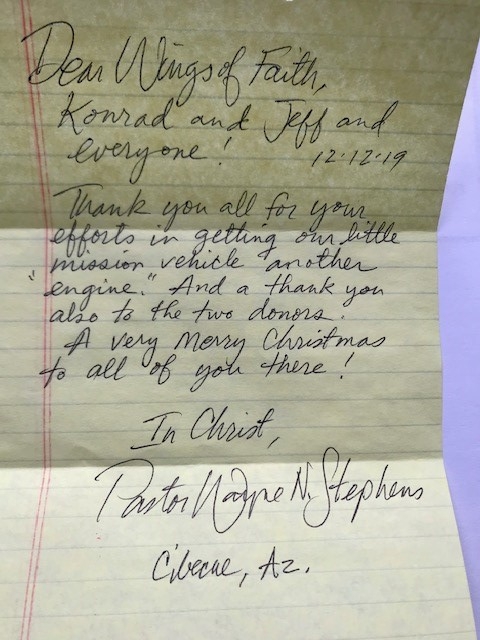 Dear Wings of Faith,
Konrad and Jeff and
everyone!
12·12·19
Thank you all for your
efforts in getting our little
mission vehicle "another
engine." And a thank you
also to the two donors.
A very Merry Christmas
to all of you there!
In Christ,
Pastor Wayne N. Stephens
Cibecue, Az.